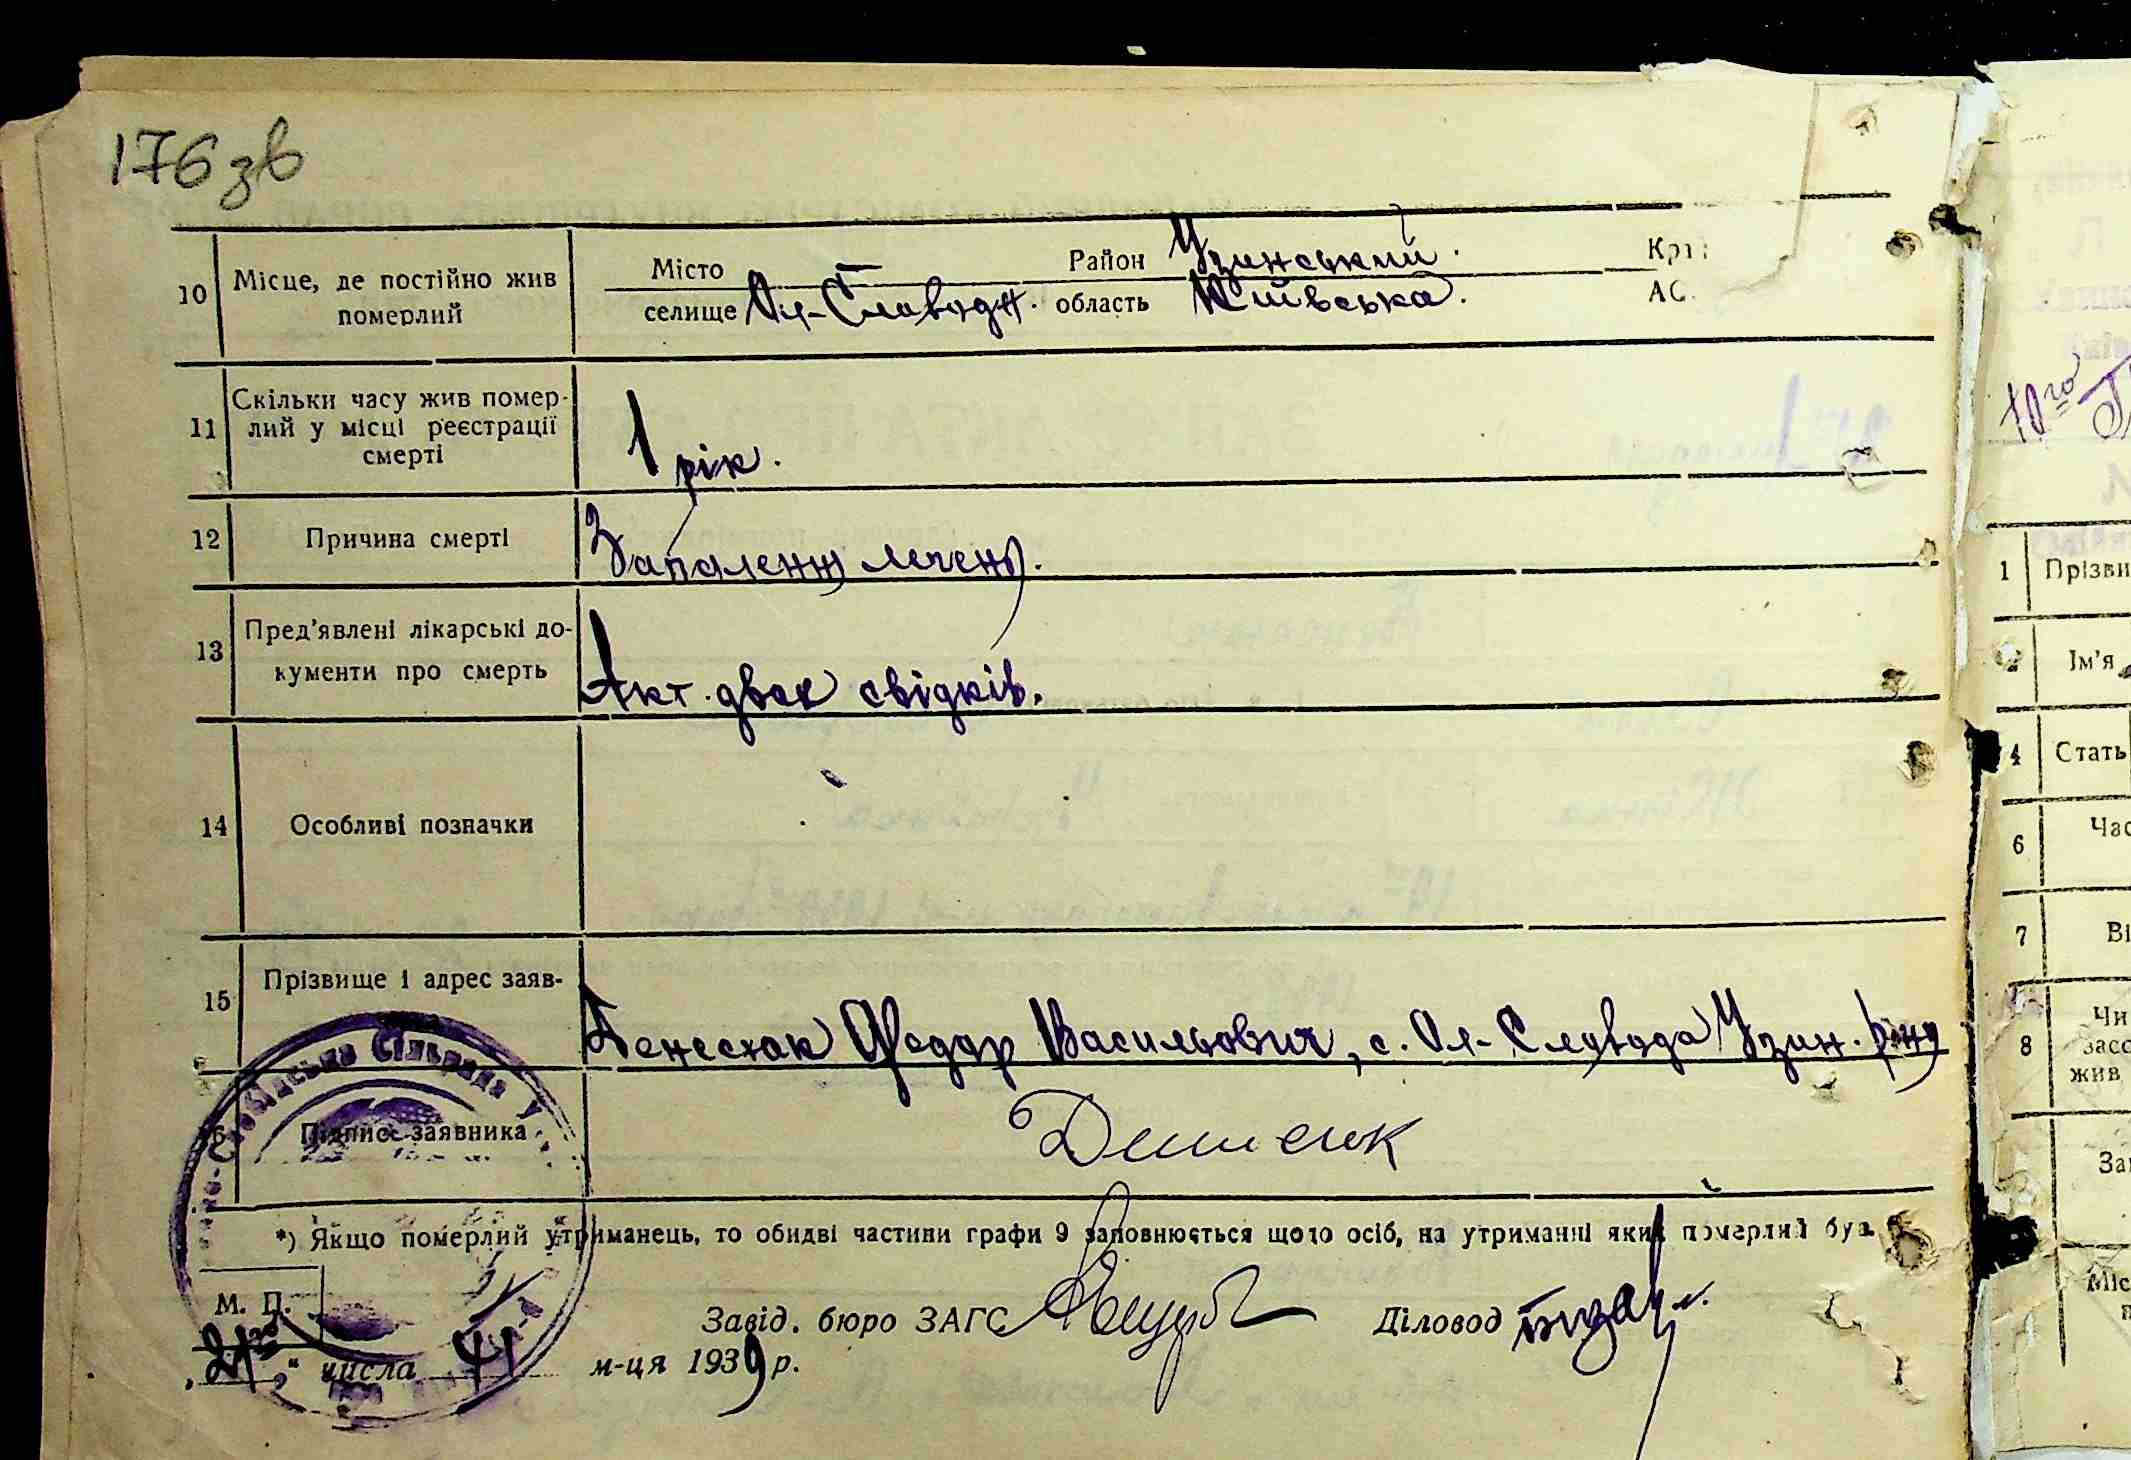 176 зв
10 Місце, де постійно жив померлий
Місто — Район Узинський. Кра
селище Ол-Слобода. область Київська. АС
11 Скільки часу жив помер-
лий у місці реєстрації
смерті
1 рік.
12 Причина смерті
Запалення печені.
13 Пред'явлені лікарські до-
кументи про смерть
Акт двох свідків.
14 Особливі позначки
15 Прізвище і адрес заяв-
Федор Васильович, с. Ол-Слобода Узин. р-ну
16 Підпис заявника
*) Якщо померлий утриманець, то обидві частини графи 9 заповнюється щодо осіб, на утриманні яких померлий був.
М. П.
Завід. бюро ЗАГС Діловод
числа м-ця 1939 р.
Сільрада
1 Прізви
Ім'я
4 Стать
6 Час
7 Ві
8 Чи
засо
жив
За
Міс
п